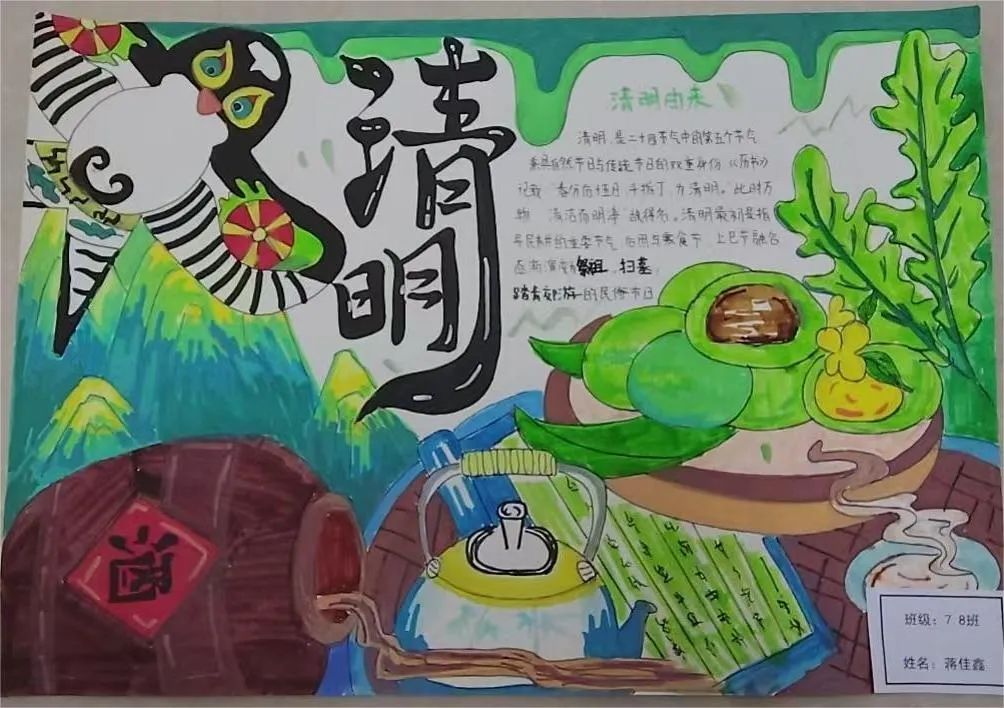 清明
清明由来
清明,是二十四节气中的第五个节气
兼具自然节日与传统节日的双重身份《历书》
记载“春分后十五日 斗指丁 为清明。”此时万
物“清洁而明净”故得名。清明最初是指
导民耕的重要节气 后因与寒食节、上巳节融合
逐渐演变为祭祖、扫墓、
踏青郊游的民俗节日
酒
班级：7.8班
姓名：蒋佳鑫